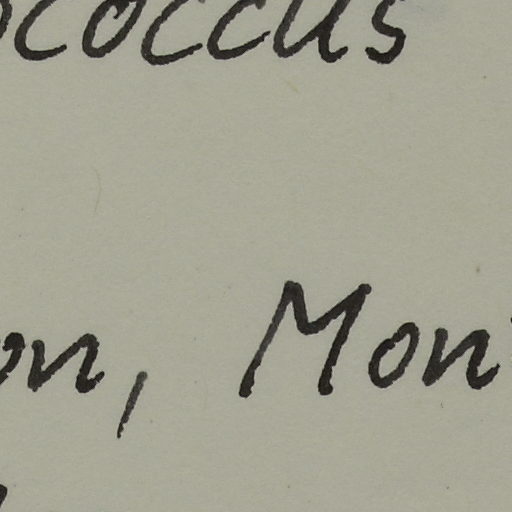 ococcus
on, Mon